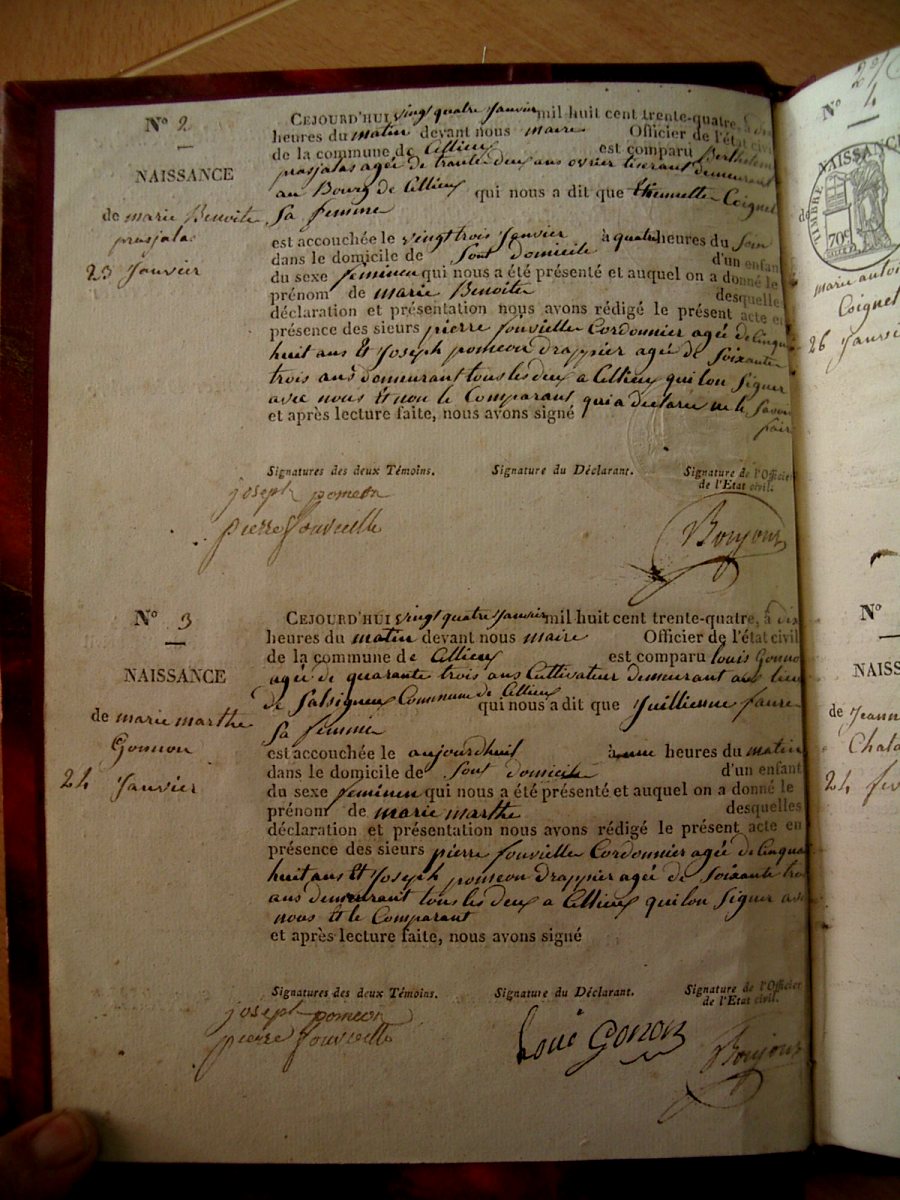 N° 2
NAISSANCE
de marie Benoite
prasjalas
23 Janvier
CEJOURD'HUI vingt quatre Janvier mil huit cent trente-quatre, à dix
heures du matin devant nous maire Officier de l'état civil
de la commune de Cellieux est comparu Berthelemi
prasjalas agée de trante deux ans ovrier tiserant demeurant
au Bourg de Cellieux qui nous a dit que Coignet
Sa femme
est accouchée le vingt trois Janvier à quatre heures du Soir
dans le domicile de Sont domicile d'un enfant
du sexe feminen qui nous a été présenté et auquel on a donné le
prénom de marie Benoite desquelles
déclaration et présentation nous avons rédigé le présent acte en
présence des sieurs pierre fouvielle Cordonnier agée de Cinquante
huit ans Et Joseph pomeon drappier agée de Soixante
trois ans demeurant tous les deux a Cellieux qui lon Signer
avec nous Et non le Comparant qui a declaree ne le Savoir
fair
et après lecture faite, nous avons signé
Signatures des deux Témoins. Signature du Déclarant. Signature de l'Officier
de l'Etat civil.
joseph pomeon
pierre fouvielle
Boujour
N° 3
NAISSANCE
de marie marthe
Gonnon
24 Janvier
CEJOURD'HUI vingt quatre Janvier mil huit cent trente-quatre, à dix
heures du matin devant nous maire Officier de l'état civil
de la commune de Cellieux est comparu louis Gonno
agée de quarante trois ans Cultivateur demeurant au lieu
de Salsigneux Commune de Cellieux qui nous a dit que Juillienne faure
Sa femme
est accouchée le aujourdhuit à une heures du matin
dans le domicile de Sont domicile d'un enfant
du sexe feminen qui nous a été présenté et auquel on a donné le
prénom de marie marthe desquelles
déclaration et présentation nous avons rédigé le présent acte en
présence des sieurs pierre fouvielle Cordonnier agée de Cinquan
huit ans Et Joseph pomeon drappier agée de Soixante tro
ans demeurant tous les deux a Cellieux qui lon Signer avec
nous Et le Comparant
et après lecture faite, nous avons signé
Signatures des deux Témoins. Signature du Déclarant. Signature de l'Officier
de l'Etat civil.
joseph pomeon
pierre fouvielle
Loui Gonon
Boujour
N° 4
NAISSANCE
TIMBRE
70c
de
marie antoi
Coignet
26 Janvi
N°
NAISS
de Jeann
Chata
24 fev